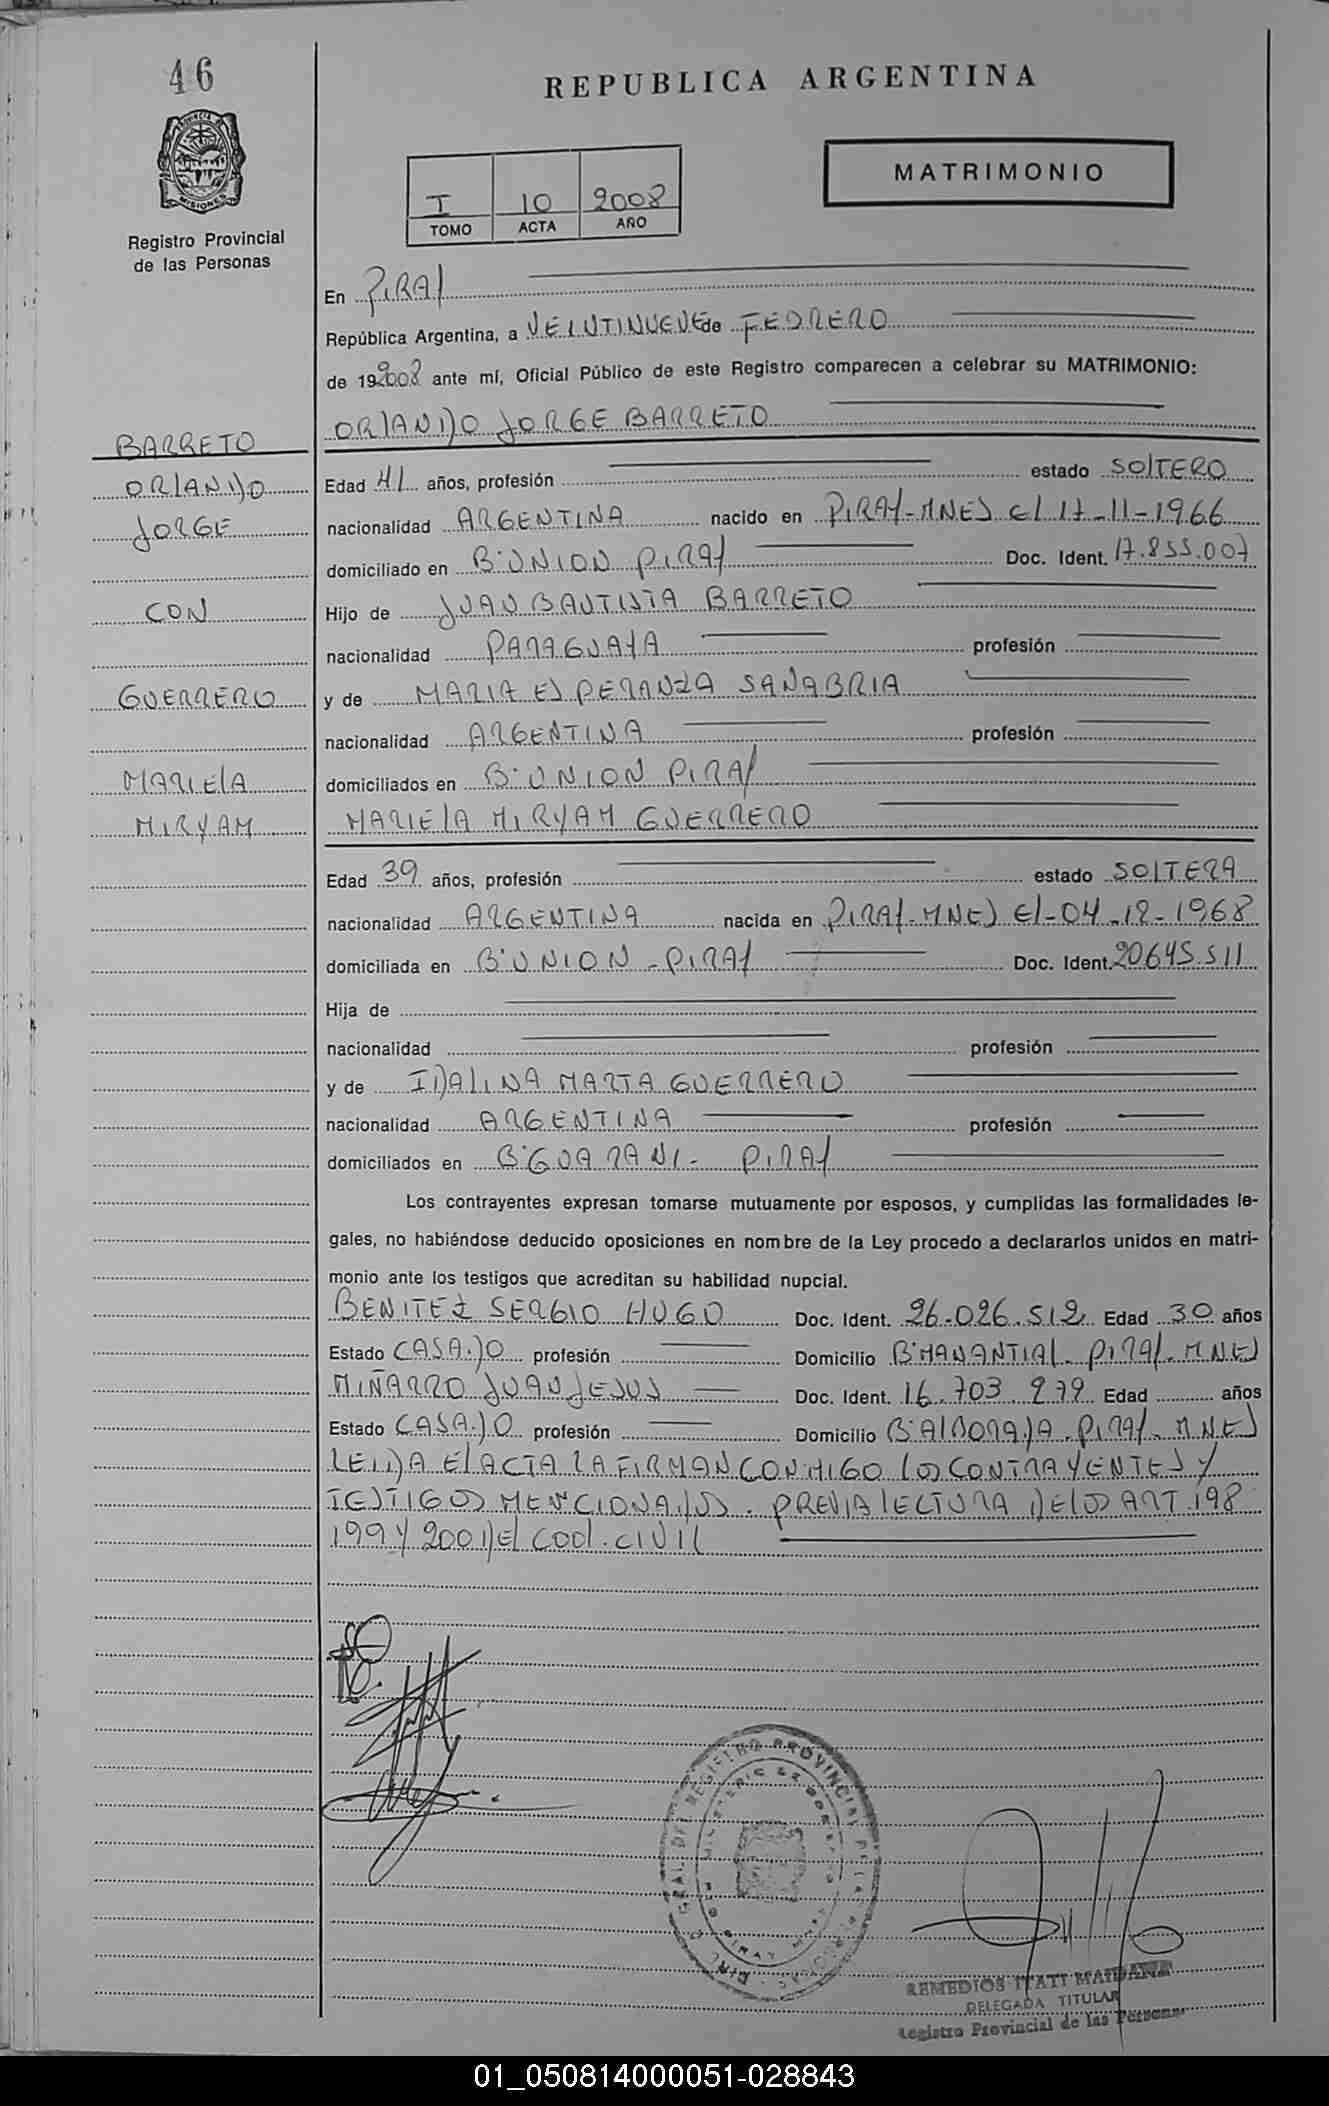 46
REPUBLICA ARGENTINA
MATRIMONIO
PROVINCIA DE
MISIONES
I 10 2008
TOMO ACTA AÑO
Registro Provincial
de las Personas
En PIRAY
República Argentina, a VEINTINUEVE de FEBRERO
de 19 2008 ante mí, Oficial Público de este Registro comparecen a celebrar su MATRIMONIO:
ORLANDO JORGE BARRETO
BARRETO
ORLANDO
JORGE
CON
GUERRERO
MARIELA
MIRYAM
Edad 41 años, profesión estado SOLTERO
nacionalidad ARGENTINA nacido en PIRAY-MNES El 17-11-1966
domiciliado en B° UNION PIRAY Doc. Ident. 17.855.007
Hijo de JUAN BAUTISTA BARRETO
nacionalidad PARAGUAYA profesión
y de MARIA ESPERANZA SANABRIA
nacionalidad ARGENTINA profesión
domiciliados en B° UNION PIRAY
MARIELA MIRYAM GUERRERO
Edad 39 años, profesión estado SOLTERA
nacionalidad ARGENTINA nacida en PIRAY-MNES El-04-12-1968
domiciliada en B° UNION - PIRAY Doc. Ident. 20645.511
Hija de
nacionalidad profesión
y de IDALINA MARTA GUERRERO
nacionalidad ARGENTINA profesión
domiciliados en B° GUARANI - PIRAY
Los contrayentes expresan tomarse mutuamente por esposos, y cumplidas las formalidades le-
gales, no habiéndose deducido oposiciones en nombre de la Ley procedo a declararlos unidos en matri-
monio ante los testigos que acreditan su habilidad nupcial.
BENITEZ SERGIO HUGO Doc. Ident. 26.026.512 Edad 30 años
Estado CASADO profesión Domicilio B° MANANTIAL - PIRAY - MNES
MIÑARRO JUAN JESUS Doc. Ident. 16.703.279 Edad años
Estado CASADO profesión Domicilio B° ALBORADA - PIRAY - MNES
LEIDA El ACTA LA FIRMAN CONMIGO LOS CONTRAYENTES Y
TESTIGOS MENCIONADOS. PREVIA LECTURA DE LOS ART 198
199 Y 200 DEL COD. CIVIL
REGISTRO PROVINCIAL DE LAS
PIRAY
REMEDIOS ITATI MAIDANA
DELEGADA TITULAR
Registro Provincial de las Personas
01_050814000051-028843